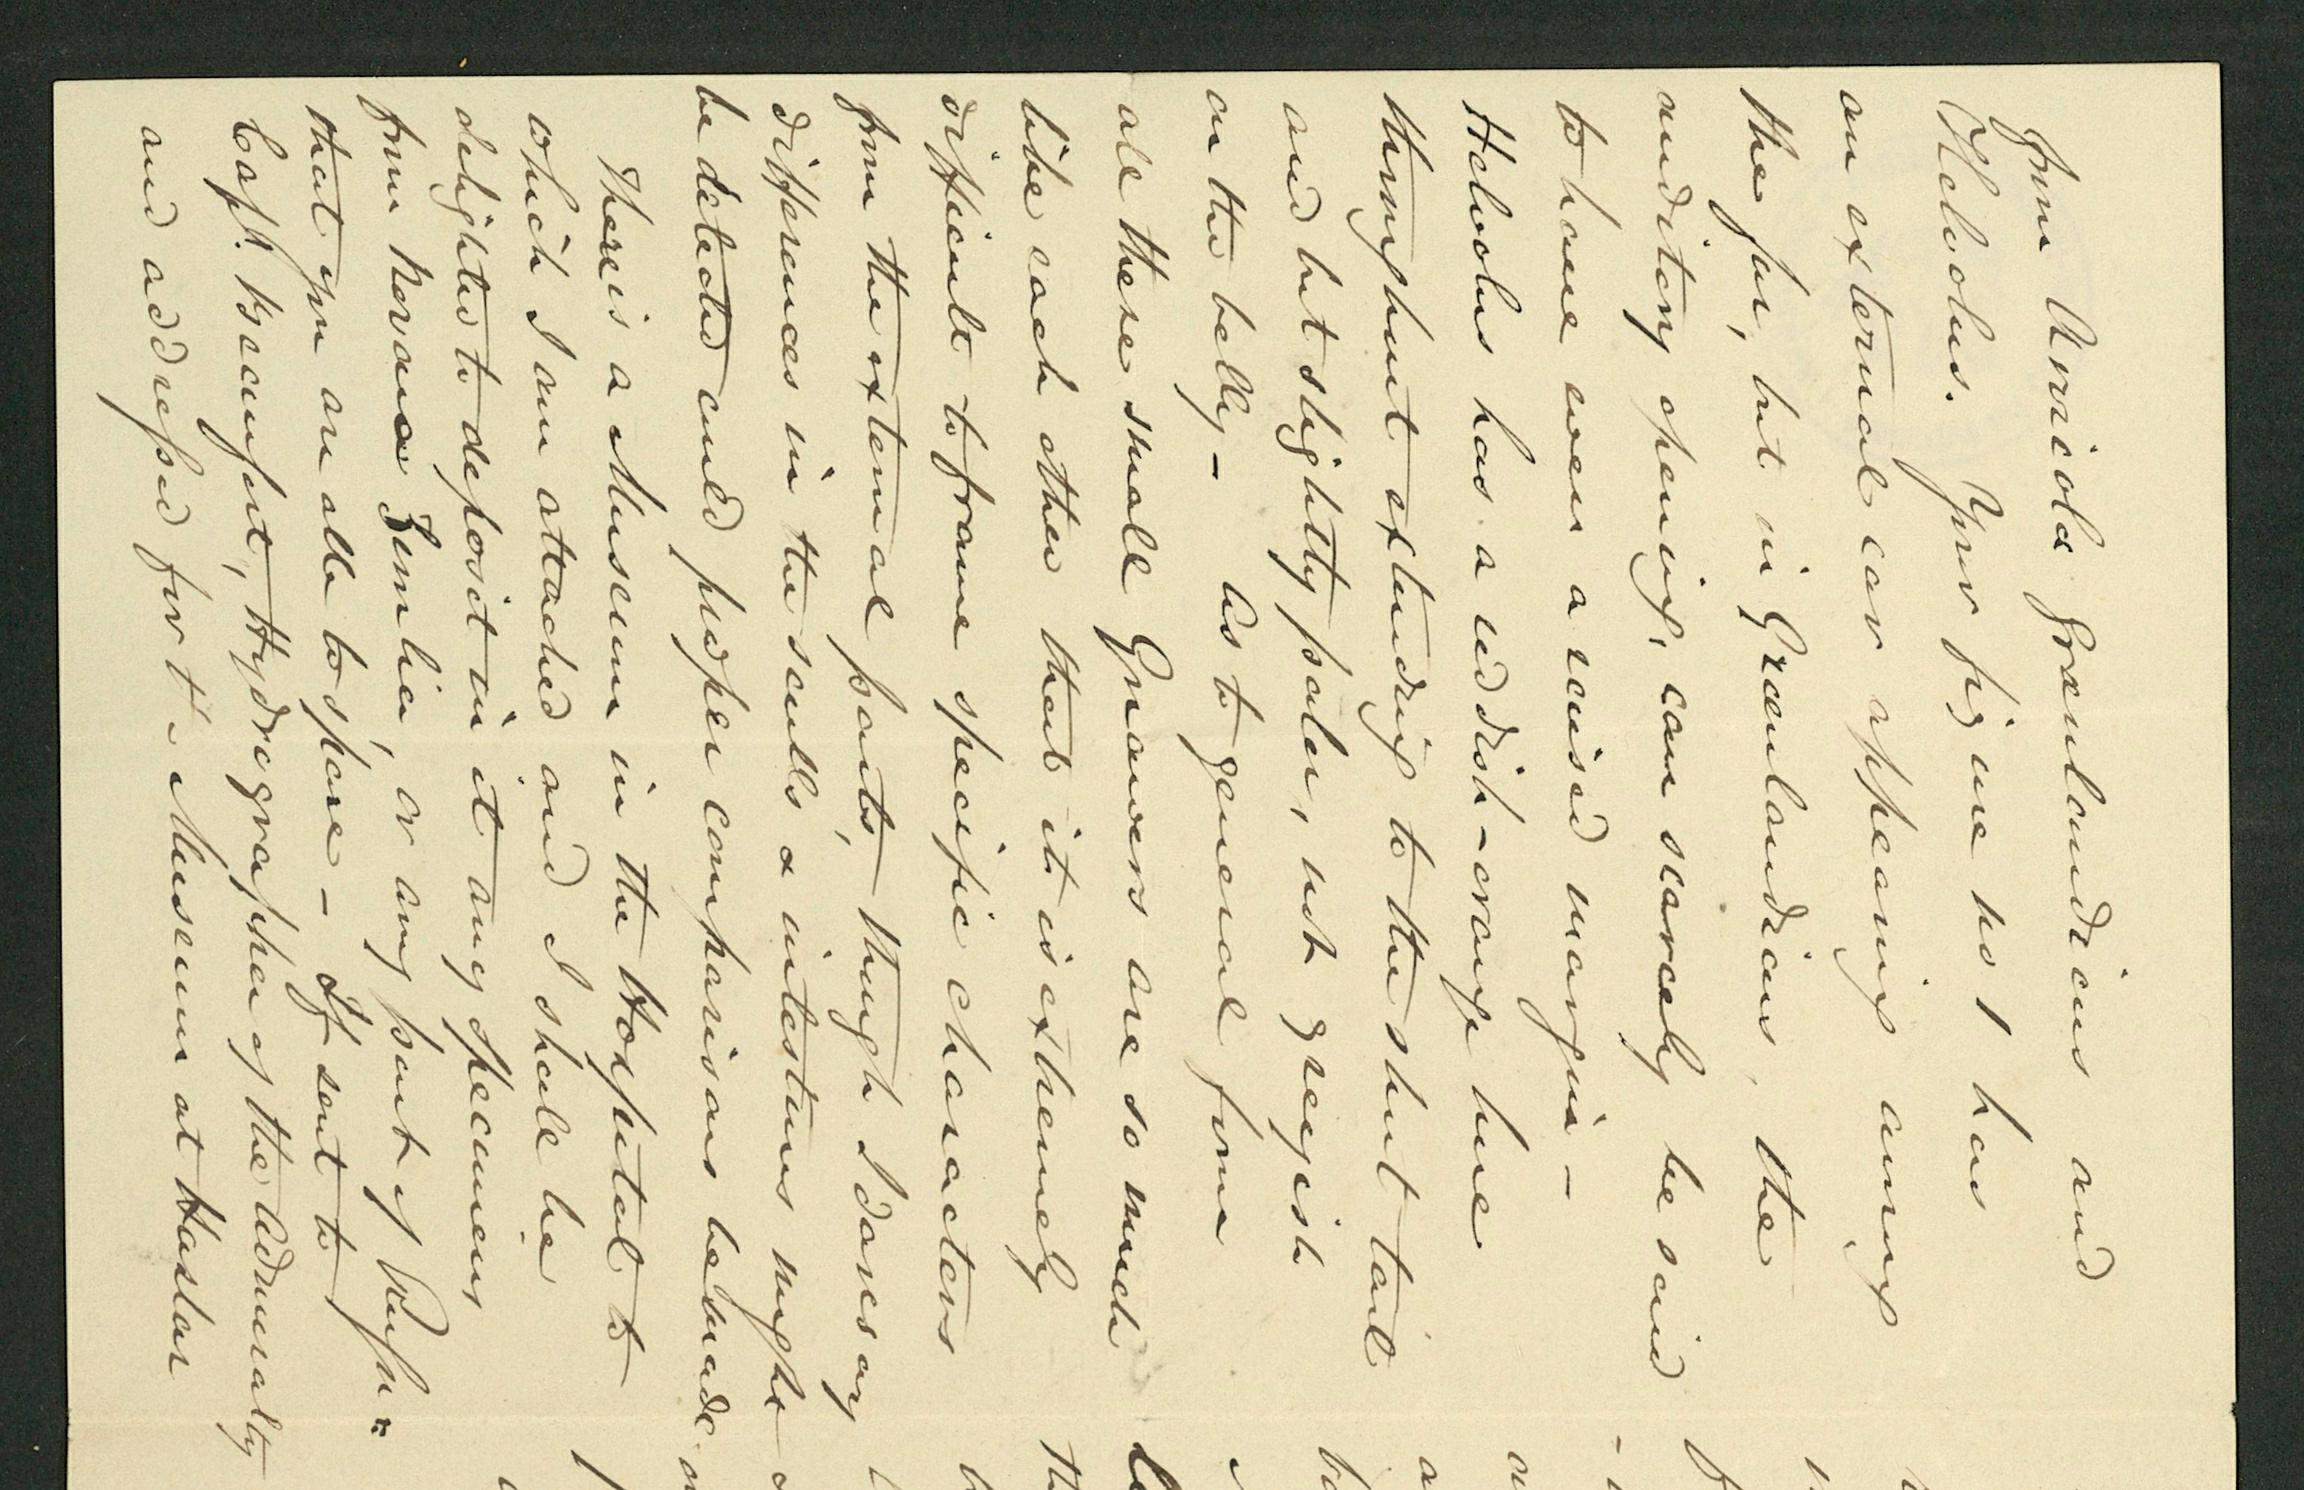 from Arvicola Grœnlandicus and
Helvolus. Your figure No 1 has
an external ear appearing among
the fur, but in Grœnlandicus, the
auditory opening, can scarcely be said
to have even a raised margin –
Helvolus has a reddish-orange hue
throughout extending to the short tail
and but slightly paler, not greyish
on the belly – As to general form
all these small Gnawers are so much
like each other that it is extremely
difficult to frame specific characters
from the external parts, though I daresay
differences in the sculls & intestines might
be detected could proper comparisons be made.
There is a Museum in the Hospital to
which I am attached and I shall be
delighted to deposit in it any specimens
from Novaia Zemlia, or any part of
that you are able to spare – If sent to
Capt. Beaufort, Hydrographer of the Admiralty
and addressed for the Museum at Haslar